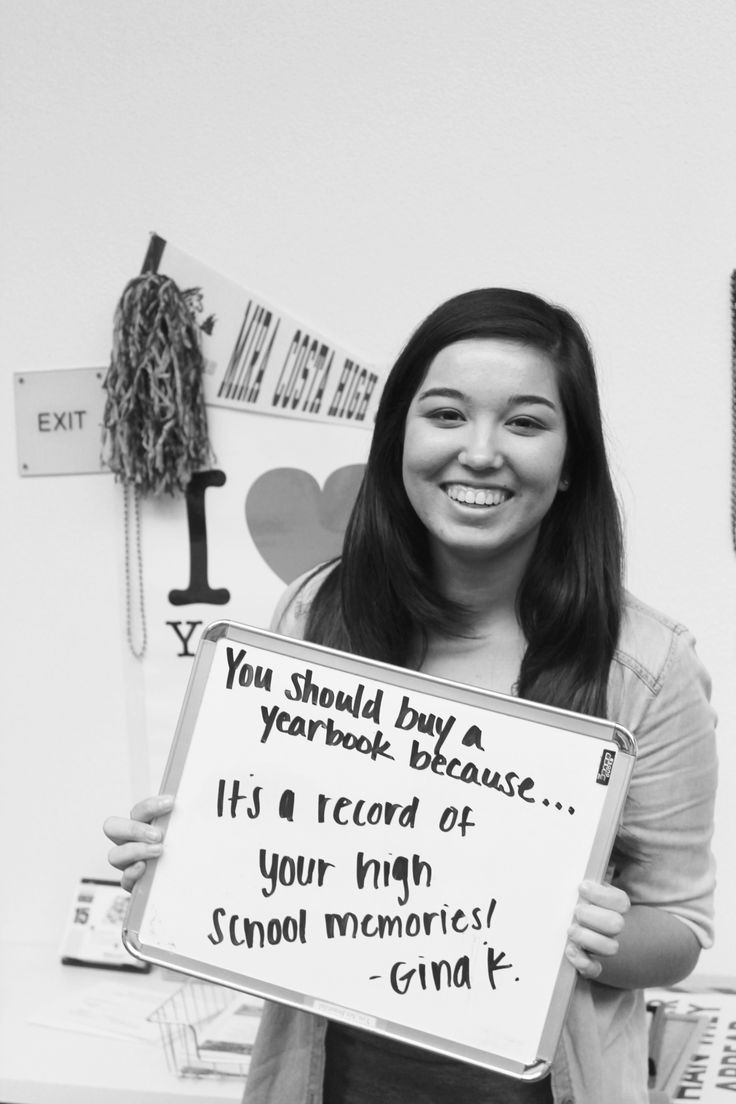 MIRA COSTA HIGH
EXIT
I
Y
You should buy a
yearbook because...
It's a record of
your high
school memories!
-Gina K.
THEY
APPEAR